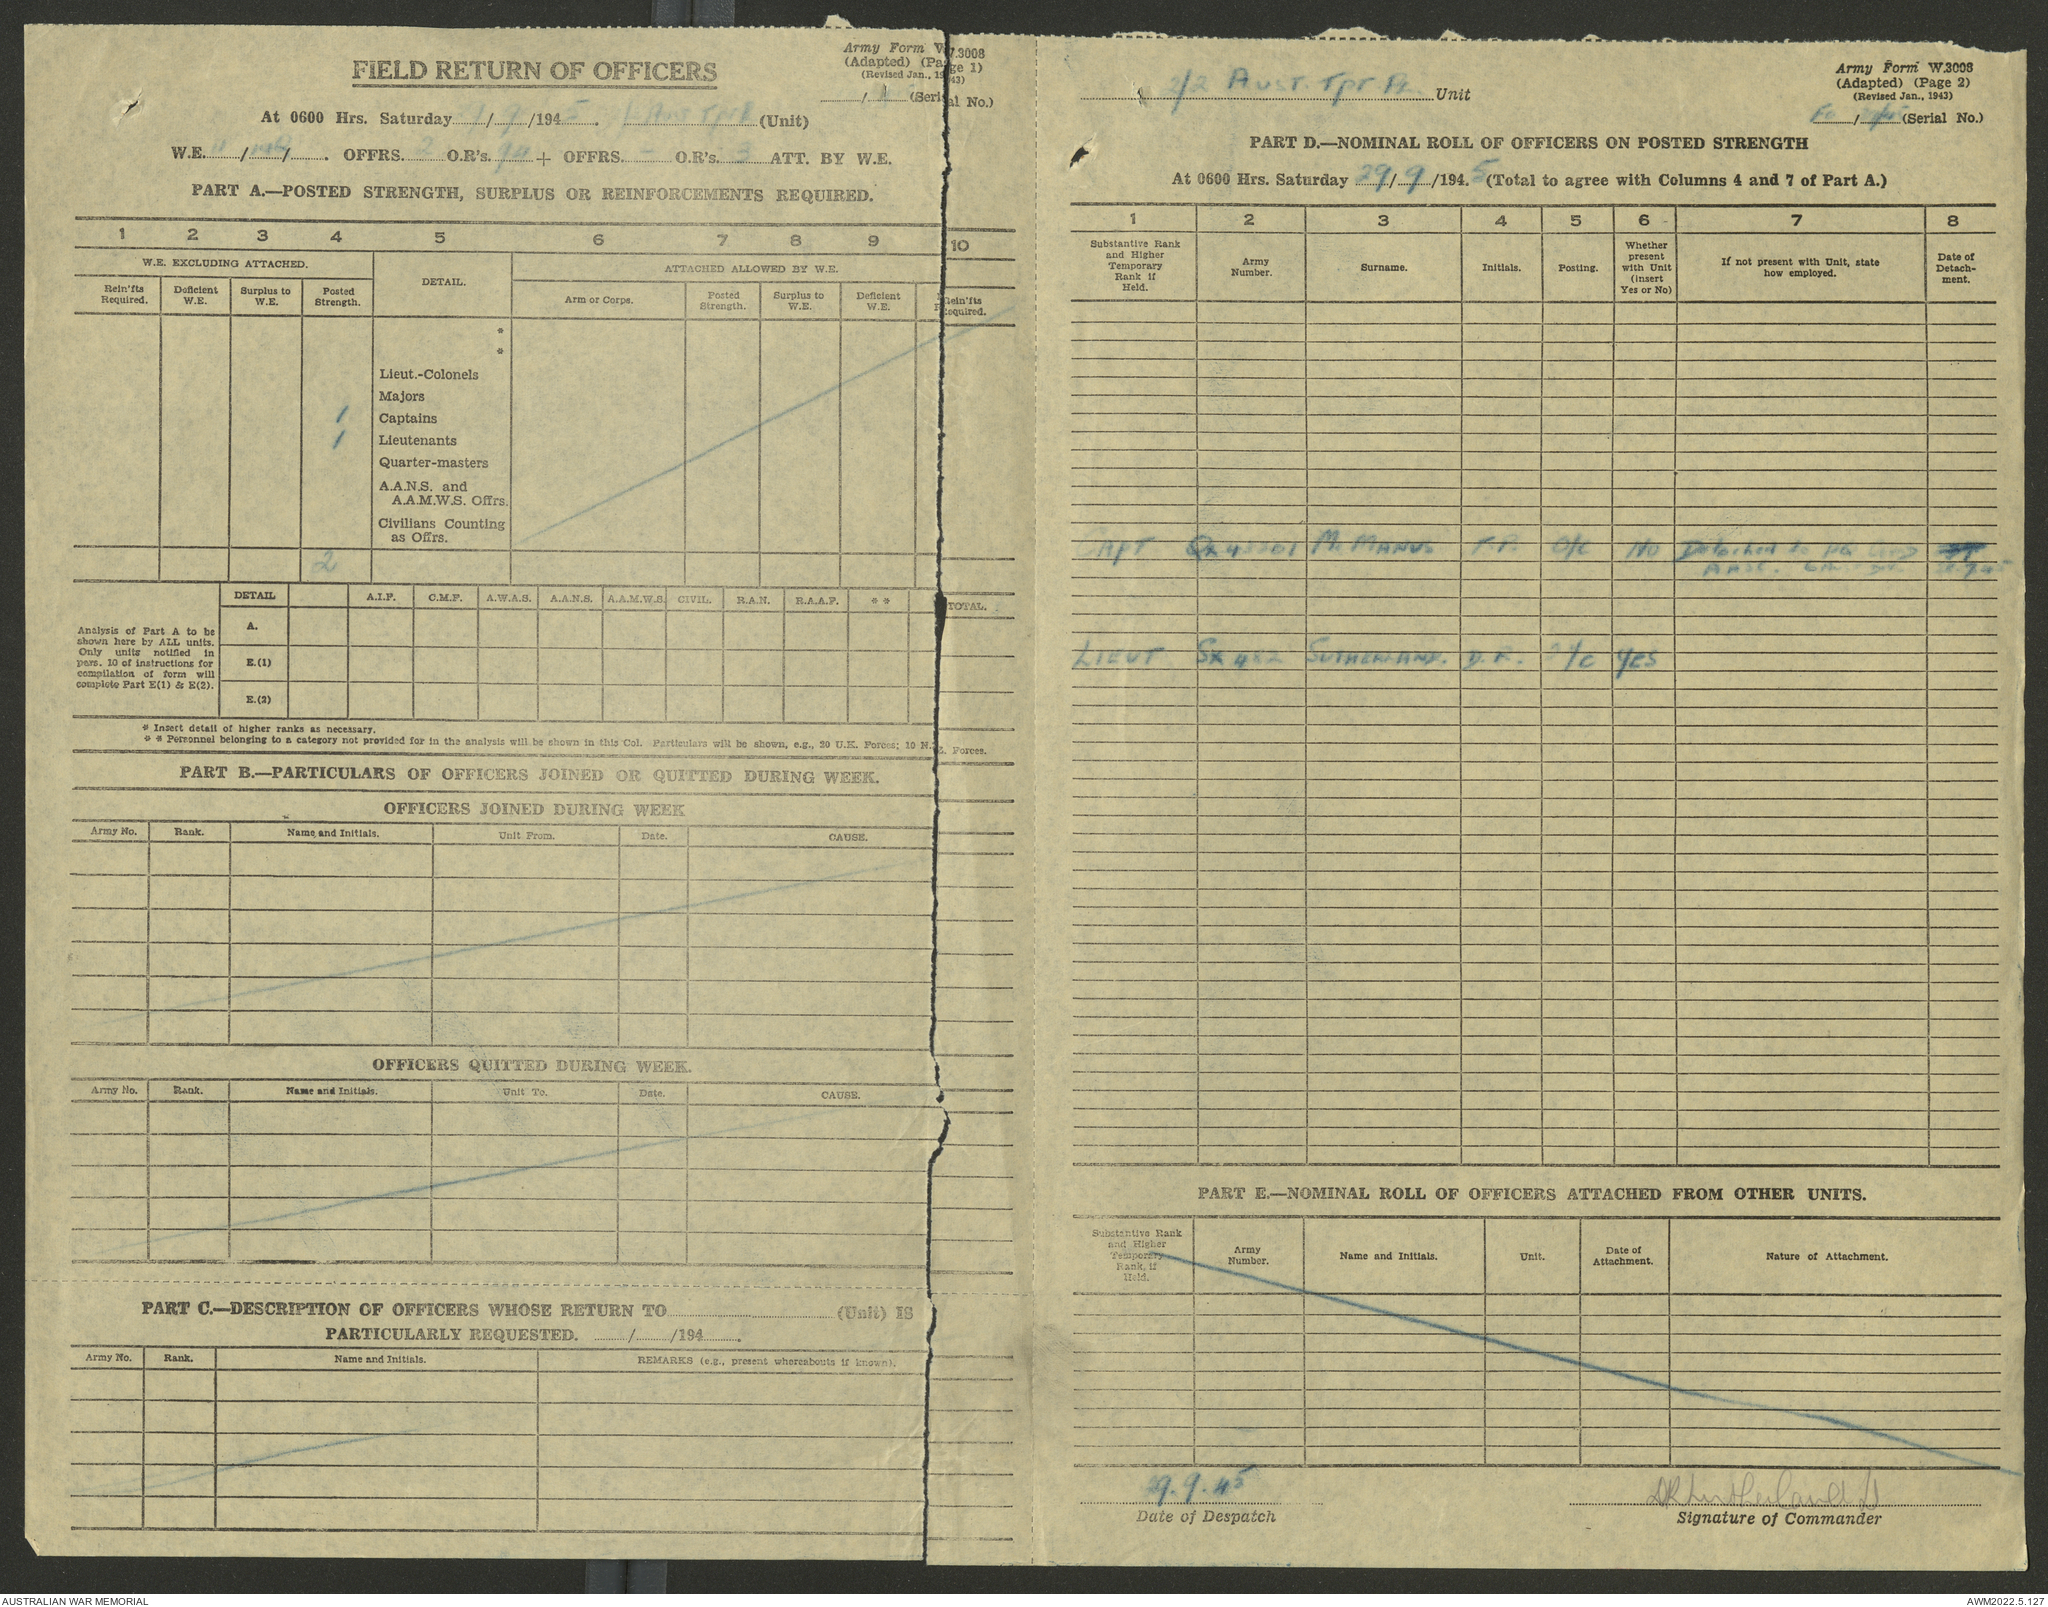 FIELD RETURN OF OFFICERS
Army Form W.3008
(Adapted) (Page 1)
(Revised Jan., 1943)
(Serial No.)
At 0600 Hrs. Saturday / 9 /194 5. (Unit)
W.E. / / . OFFRS. 2 O.R's. 94 + OFFRS. - O.R's. 3 ATT. BY W.E.
PART A.—POSTED STRENGTH, SURPLUS OR REINFORCEMENTS REQUIRED.
1 2 3 4 5 6 7 8 9 10
W.E. EXCLUDING ATTACHED.
DETAIL.
ATTACHED ALLOWED BY W.E.
Rein'fts Required.
Deficient W.E.
Surplus to W.E.
Posted Strength.
Arm or Corps.
Posted Strength.
Surplus to W.E.
Deficient W.E.
Rein'fts Required.
*
*
Lieut.-Colonels
Majors
1 Captains
1 Lieutenants
Quarter-masters
A.A.N.S. and
A.A.M.W.S. Offrs.
Civilians Counting
as Offrs.
2
DETAIL A.I.F. C.M.F. A.W.A.S. A.A.N.S. A.A.M.W.S. CIVIL. R.A.N. R.A.A.F. * * TOTAL.
Analysis of Part A to be
shown here by ALL units.
Only units notified in
pars. 10 of instructions for
compilation of form will
complete Part E(1) & E(2).
A.
E.(1)
E.(2)
* Insert detail of higher ranks as necessary.
* * Personnel belonging to a category not provided for in the analysis will be shown in this Col. Particulars will be shown, e.g., 20 U.K. Forces; 10 N.Z. Forces.
PART B.—PARTICULARS OF OFFICERS JOINED OR QUITTED DURING WEEK.
OFFICERS JOINED DURING WEEK
Army No. Rank. Name and Initials. Unit From. Date. CAUSE.
OFFICERS QUITTED DURING WEEK.
Army No. Rank. Name and Initials. Unit To. Date. CAUSE.
PART C.—DESCRIPTION OF OFFICERS WHOSE RETURN TO (Unit) IS
PARTICULARLY REQUESTED. / /194 .
Army No. Rank. Name and Initials. REMARKS (e.g., present whereabouts if known).
Army Form W.3008
(Adapted) (Page 2)
(Revised Jan., 1943)
(Serial No.)
2/2 Aust. Tpt. Pl. Unit
PART D.—NOMINAL ROLL OF OFFICERS ON POSTED STRENGTH
At 0600 Hrs. Saturday 29/9/194.5 (Total to agree with Columns 4 and 7 of Part A.)
1 2 3 4 5 6 7 8
Substantive Rank
and Higher
Temporary
Rank if
Held.
Army
Number.
Surname.
Initials.
Posting.
Whether
present
with Unit
(insert
Yes or No)
If not present with Unit, state
how employed.
Date of
Detach-
ment.
CAPT McMANUS O/C No Detached to HQ
LIEUT SUTHERLAND. D.R. /c YES
PART E.—NOMINAL ROLL OF OFFICERS ATTACHED FROM OTHER UNITS.
Substantive Rank
and Higher
Temporary
Rank, if
Held.
Army
Number.
Name and Initials.
Unit.
Date of
Attachment.
Nature of Attachment.
29.9.45
Date of Despatch
DR Sutherland Lt
Signature of Commander
AUSTRALIAN WAR MEMORIAL
AWM2022.5.127